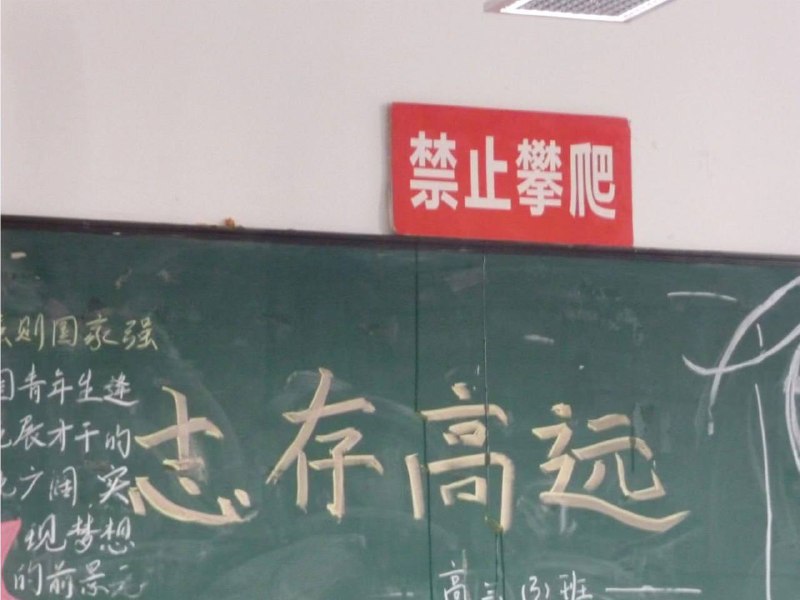 禁止攀爬
则国家强
国青年生逢
展才干的
广阔 实
现梦想
的前景
志存高远
高三(3)班